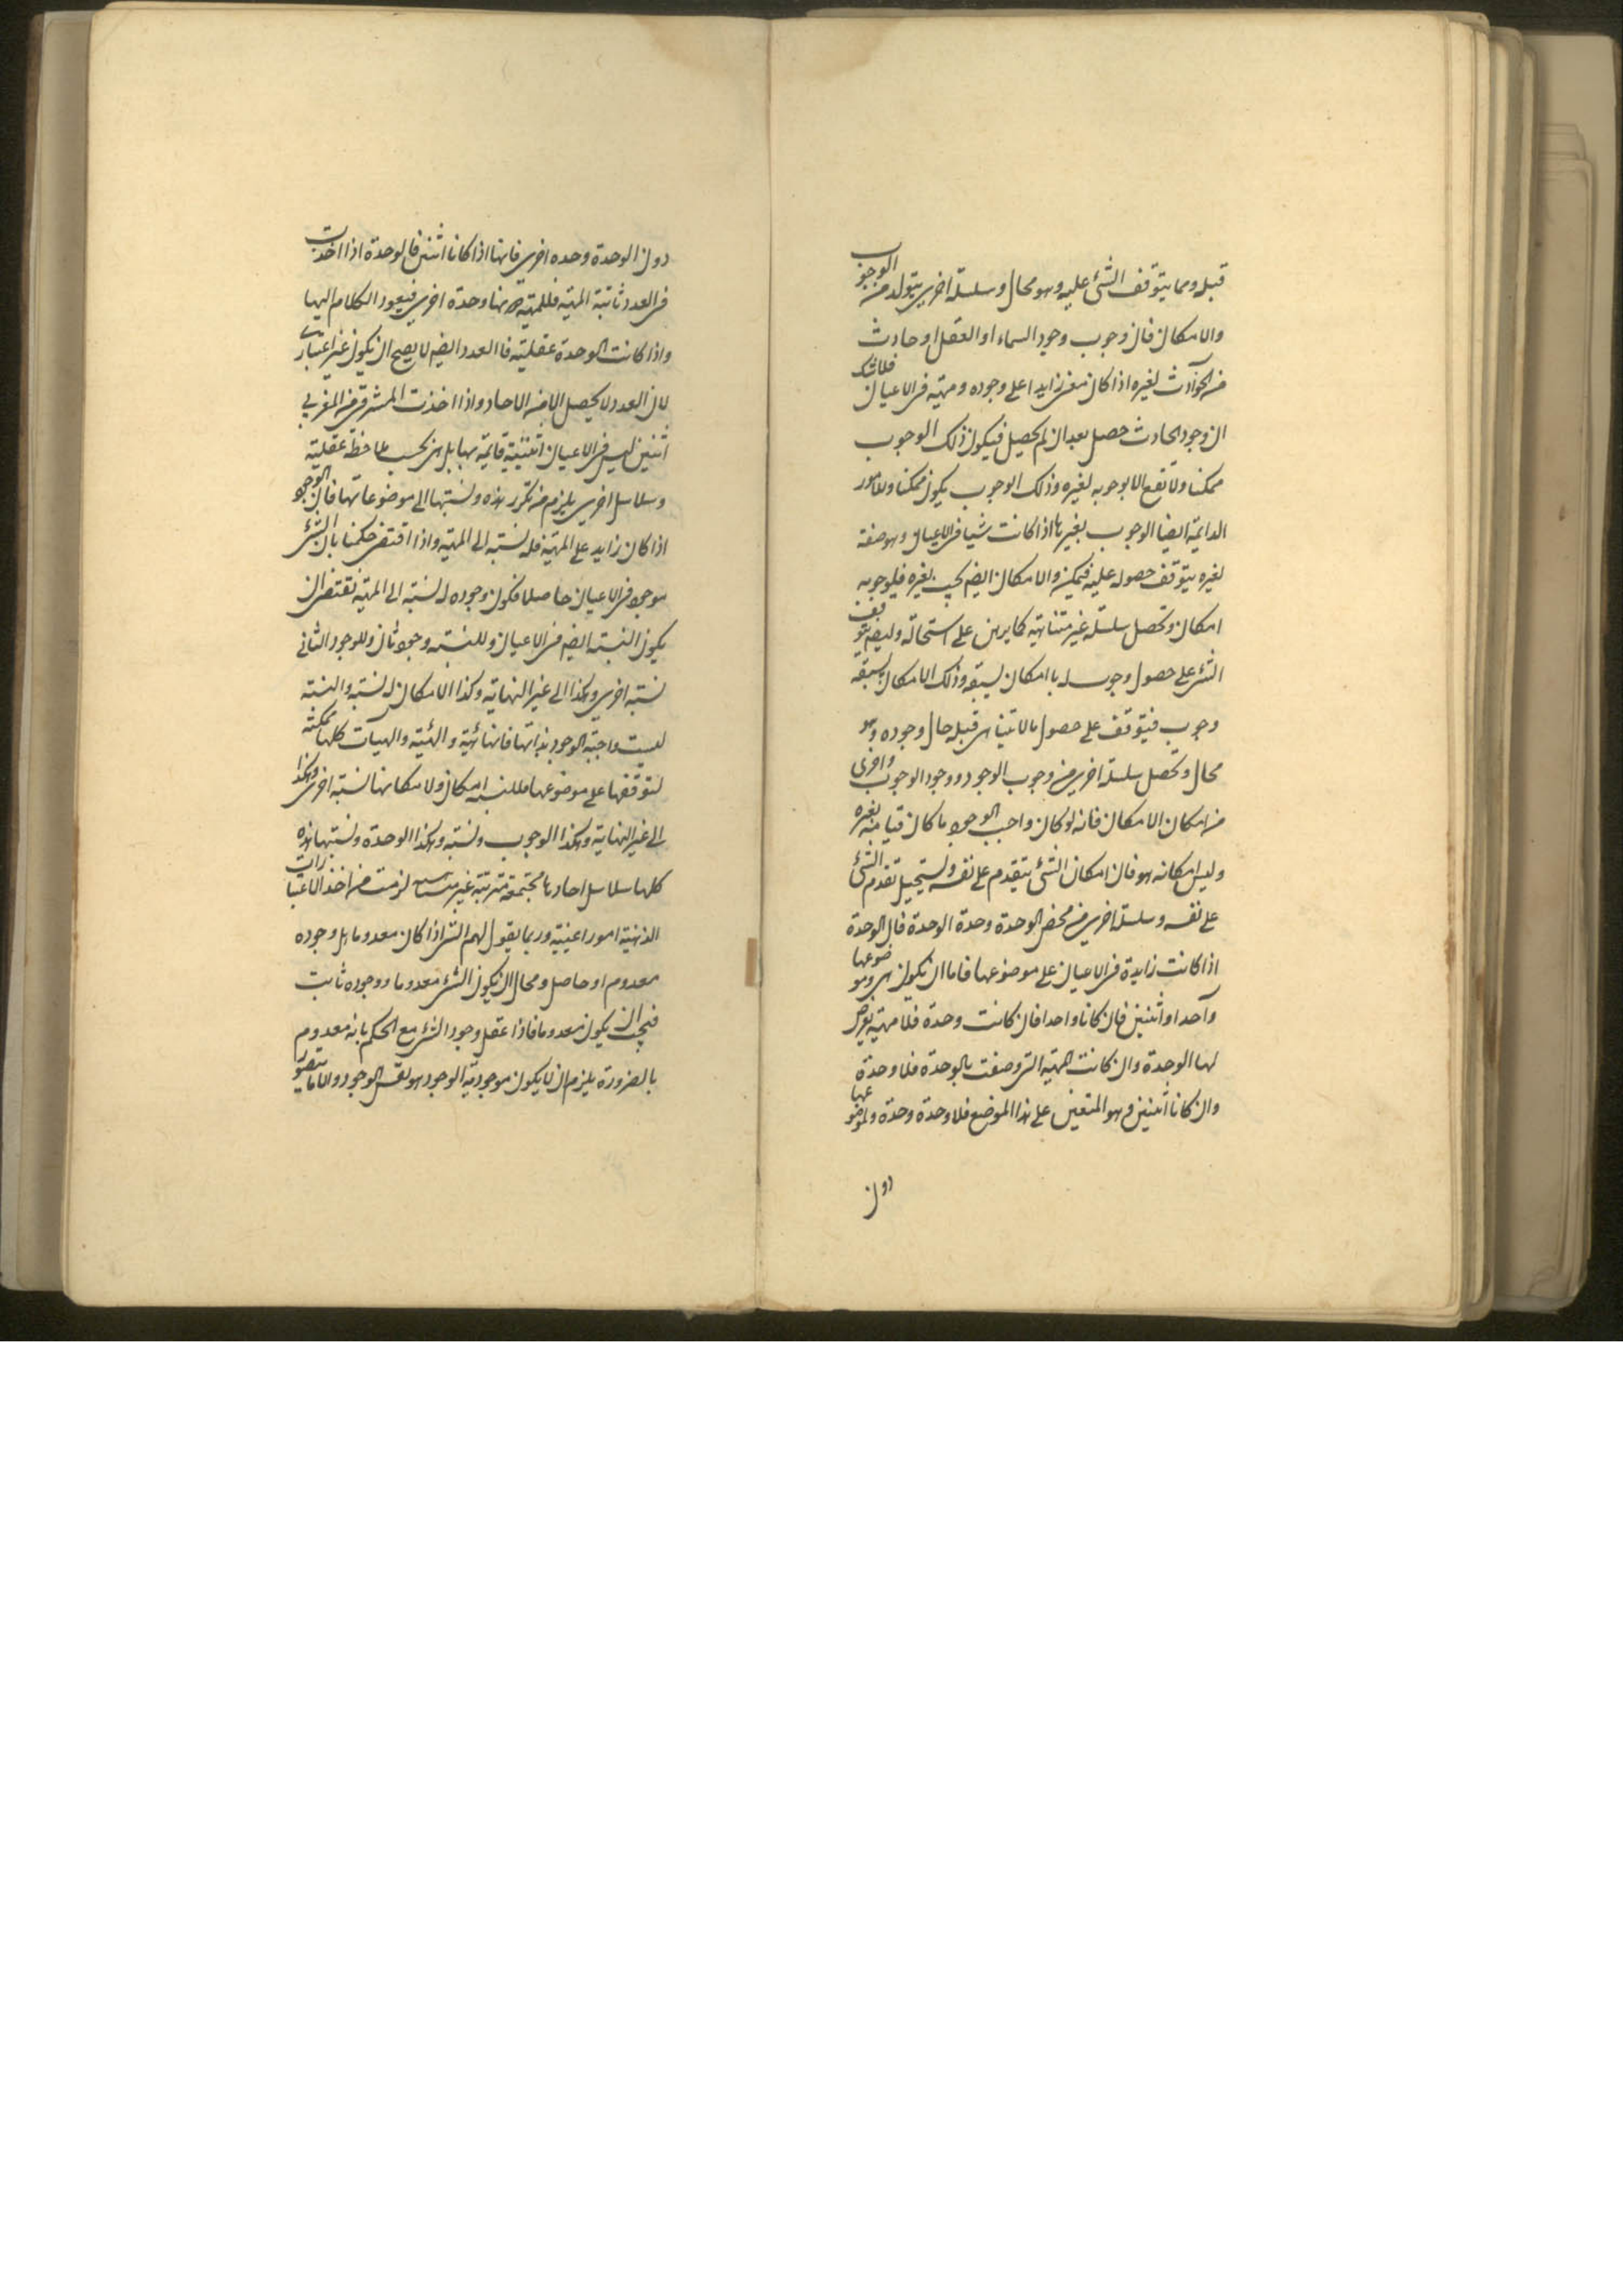 قبله ومما يتوقف الشئ عليه وهو محال وسلسلة اخرى يتولد من الوجوب
والامكان فان وجوب وجود السماء او العقل او حادث
من الحوادث لغيره اذا كان معنى زايدا على وجوده ومهيته فى الاعيان فلا شك
ان وجود الحادث حصل بعد ان لم يحصل فيكون ذلك الوجوب
ممكنا ولا تقع الا بوجوبه لغيره وذلك الوجوب يكون ممكنا وللامور
الدايمة ايضا الوجوب بغيرها اذا كانت شيا فى الاعيان وهو صفة
لغيره يتوقف حصوله عليه فيمكن والامكان ايضا يجب بغيره فيلوجوبه
امكان وتحصل سلسلة غير متناهية كما يبرهن على استحالته وايضا يتوقف
الشئ على حصول وجوب له بامكان يسبقه وذلك الامكان يسبقه
وجوب فيتوقف على حصول ما لا يتناهى قبله حال وجوده وهو
محال وتحصل سلسلة اخرى من وجوب الوجود ووجود الوجوب واخرى
من امكان الامكان فانه لو كان واجب الوجود ما كان قيامه بغيره
وليس امكانه هو فان امكان الشئ يتقدم على نفسه ويستحيل تقدم الشئ
على نفسه وسلسلة اخرى من محض الوحدة وحدة الوحدة فان الوحدة
اذا كانت زايدة فى الاعيان على موضوعها فاما ان يكون هى وموضوعها
واحدا او اثنين فان كانا واحدا فان كانت وحدة فلا مهية يعرض
لها الوحدة وان كانت المهية التى وصفت بالوحدة فلا وحدة
وان كانا اثنين وهو المتعين على هذا الموضع فلا وحدة وحدة ولموضوعها
دون
دون الوحدة وحده اخرى فانها اذا كانا اثنين فالوحدة اذا اخذت
فى العدد ثانية المهية فللمهية دونها وحدة اخرى فيعود الكلام اليها
واذا كانت الوحدة عقلية فالعدد ايضا لا يصح ان يكون غير اعتبارى
لان العدد لا يحصل الا من الاحاد واذا اخذت المشرقى مع المغربى
اثنين ليس فى الاعيان اثنينية قايمة بهما بل هى بحسب ملاحظة عقلية
وسلاسل اخرى يلزم من تكرر هذه ونسبتها الى موضوعاتها فان الوجود
اذا كان زايد على المهية فله نسبة الى المهية واذا اقتضى حكمنا بان الشئ
موجود فى الاعيان حاصلا فكون وجوده له نسبة الى المهية تقتضى ان
يكون النسبة ايضا فى الاعيان وللنسبة وجود ثان وللوجود الثانى
نسبة اخرى وهكذا الى غير النهاية وكذا الامكان له نسبة والنسبة
ليست واجبة الوجود بذاتها فانها هيئة والهيئة والهيات كلها ممكنة
لتوقفها على موضوعها فللنسبة امكان ولامكانها نسبة اخرى وهكذا
الى غير النهاية وهكذا الوجوب ونسبته وهكذا الوحدة ونسبتها هذه
كلها سلاسل احادها مجتمعة مترتبة غير متناهية لزمت من اخذ الاعتبارات
الذهنية امورا عينية وربما يقول لهم الشئ اذا كان معدوما هل وجوده
معدوم او حاصل ومحال ان يكون الشئ معدوما ووجوده ثابت
فيجب ان يكون معدوما فاذا عقل وجود الشئ مع الحكم بانه معدوم
بالضرورة يلزم ان لا يكون موجودية الوجود هو نفس الوجود والا ما يتصور